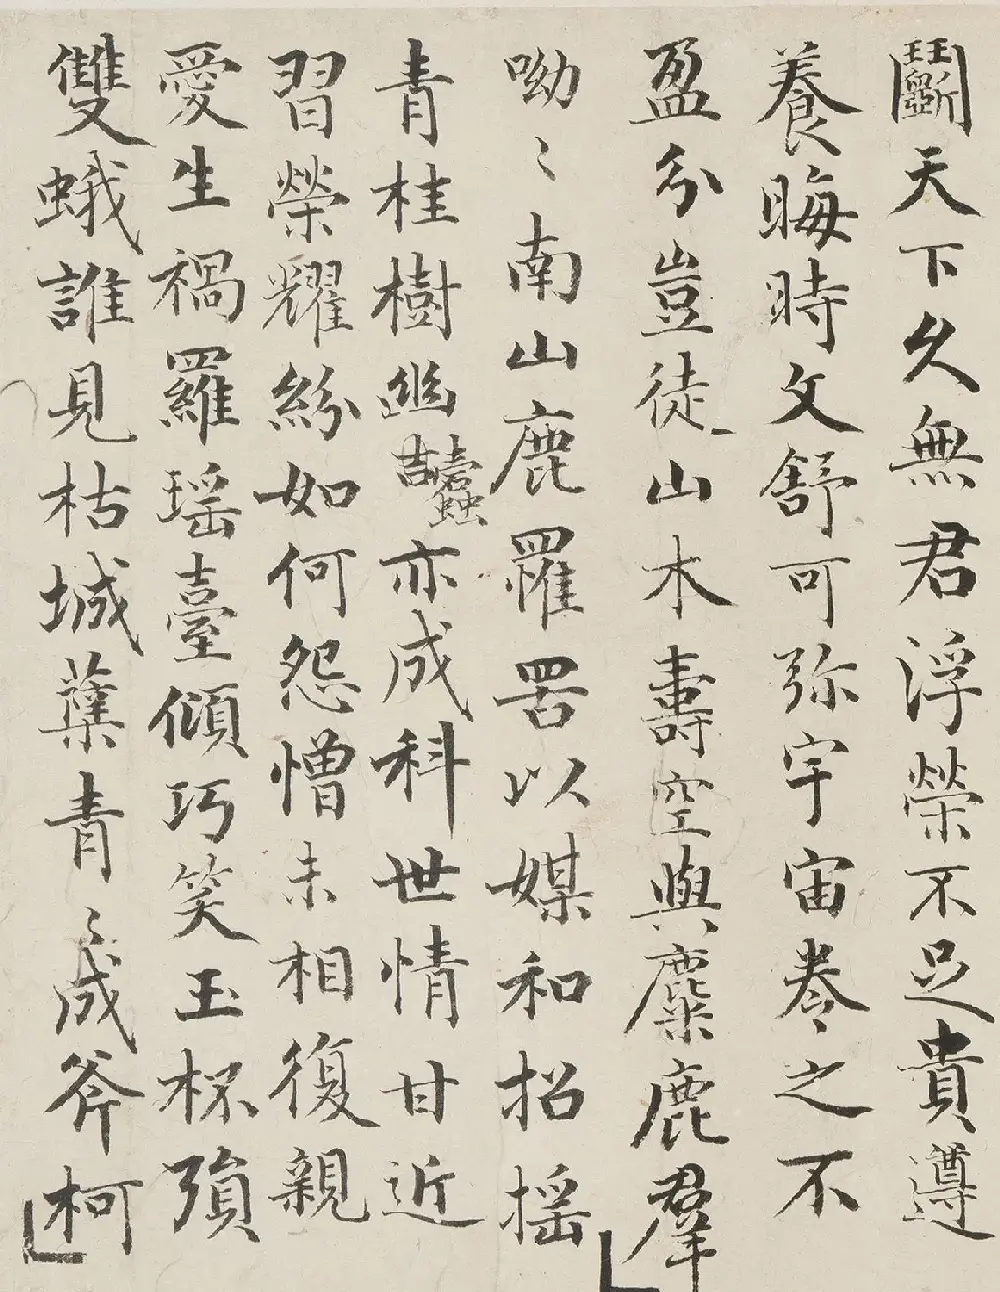 鬭天下久無君浮榮不足貴遵
養晦時文舒可弥宇宙卷之不
盈分豈徒山木壽空與麋鹿羣
呦〻南山鹿罹罟以媒和招摇
青桂樹幽蠹亦成科世情甘近
習榮耀紛如何怨憎未相復親
愛生禍羅瑶臺傾巧笑玉杯殞
雙蛾誰見枯城蘖青〻成斧柯